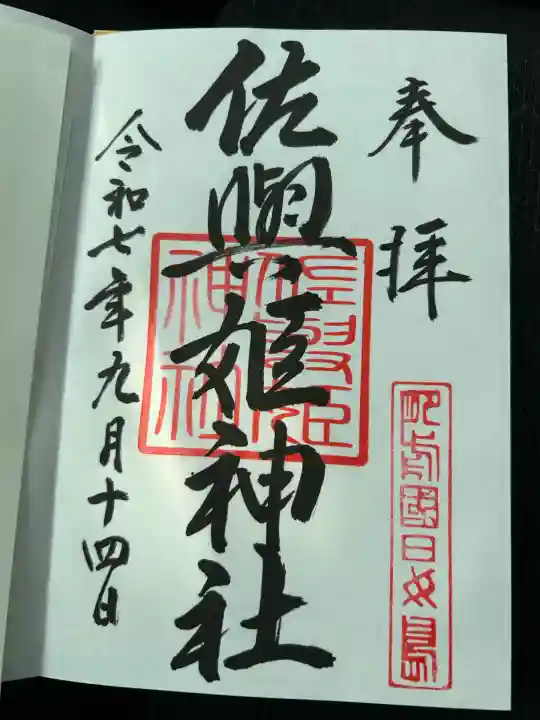 奉拝
肥前國日女島
佐與姫神社
佐與姫
神社
令和七年九月十四日